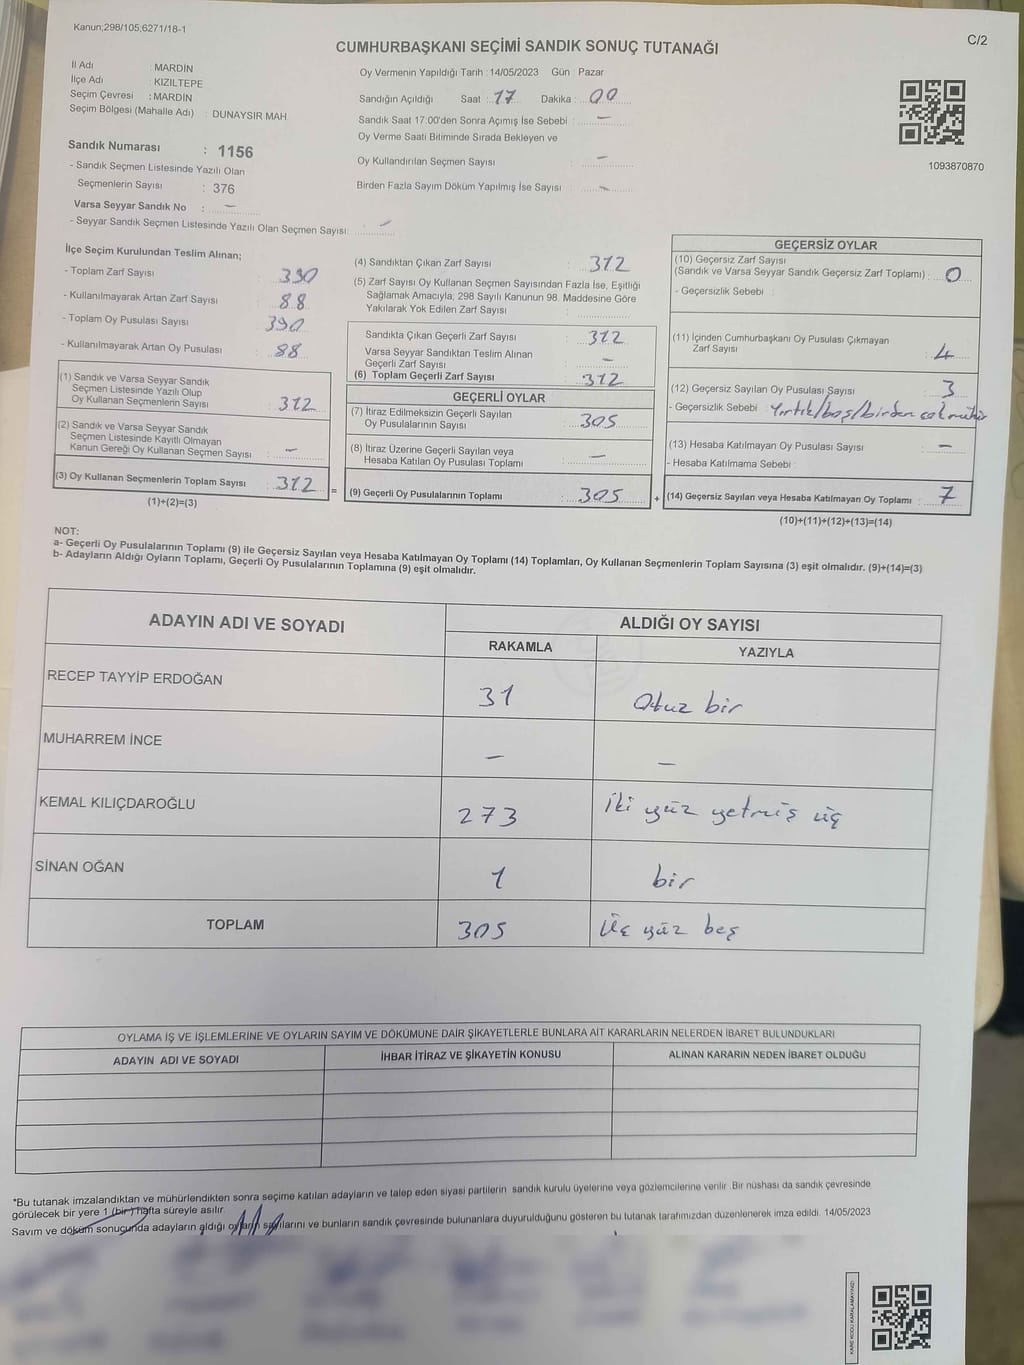 Kanun;298/105,6271/18-1
C/2
CUMHURBAŞKANI SEÇİMİ SANDIK SONUÇ TUTANAĞI
İl Adı : MARDİN
İlçe Adı : KIZILTEPE
Seçim Çevresi : MARDİN
Seçim Bölgesi (Mahalle Adı) : DUNAYSIR MAH.
Sandık Numarası : 1156
- Sandık Seçmen Listesinde Yazılı Olan
Seçmenlerin Sayısı : 376
Varsa Seyyar Sandık No : –
- Seyyar Sandık Seçmen Listesinde Yazılı Olan Seçmen Sayısı: –
Oy Vermenin Yapıldığı Tarih : 14/05/2023 Gün : Pazar
Sandığın Açıldığı Saat : 17 Dakika : 00
Sandık Saat 17.00'den Sonra Açımış İse Sebebi : –
Oy Verme Saati Bitiminde Sırada Bekleyen ve
Oy Kullandırılan Seçmen Sayısı : –
Birden Fazla Sayım Döküm Yapılmış İse Sayısı : –
1093870870
İlçe Seçim Kurulundan Teslim Alınan;
- Toplam Zarf Sayısı : 390
- Kullanılmayarak Artan Zarf Sayısı : 88
- Toplam Oy Pusulası Sayısı : 390
- Kullanılmayarak Artan Oy Pusulası : 88
(1) Sandık ve Varsa Seyyar Sandık
Seçmen Listesinde Yazılı Olup
Oy Kullanan Seçmenlerin Sayısı : 312
(2) Sandık ve Varsa Seyyar Sandık
Seçmen Listesinde Kayıtlı Olmayan
Kanun Gereği Oy Kullanan Seçmen Sayısı : –
(3) Oy Kullanan Seçmenlerin Toplam Sayısı : 312 =
(1)+(2)=(3)
(4) Sandıktan Çıkan Zarf Sayısı : 312
(5) Zarf Sayısı Oy Kullanan Seçmen Sayısından Fazla İse, Eşitliği
Sağlamak Amacıyla; 298 Sayılı Kanunun 98. Maddesine Göre
Yakılarak Yok Edilen Zarf Sayısı :
Sandıkta Çıkan Geçerli Zarf Sayısı : 312
Varsa Seyyar Sandıktan Teslim Alınan
Geçerli Zarf Sayısı : –
(6) Toplam Geçerli Zarf Sayısı : 312
GEÇERLİ OYLAR
(7) İtiraz Edilmeksizin Geçerli Sayılan
Oy Pusulalarının Sayısı : 305
(8) İtiraz Üzerine Geçerli Sayılan veya
Hesaba Katılan Oy Pusulası Toplamı : –
(9) Geçerli Oy Pusulalarının Toplamı : 305 +
GEÇERSİZ OYLAR
(10) Geçersiz Zarf Sayısı
(Sandık ve Varsa Seyyar Sandık Geçersiz Zarf Toplamı) : 0
- Geçersizlik Sebebi :
(11) İçinden Cumhurbaşkanı Oy Pusulası Çıkmayan
Zarf Sayısı : 4
(12) Geçersiz Sayılan Oy Pusulası Sayısı : 3
- Geçersizlik Sebebi : Yırtık/boş/birden çok mühür
(13) Hesaba Katılmayan Oy Pusulası Sayısı : –
- Hesaba Katılmama Sebebi :
(14) Geçersiz Sayılan veya Hesaba Katılmayan Oy Toplamı : 7
(10)+(11)+(12)+(13)=(14)
NOT:
a- Geçerli Oy Pusulalarının Toplamı (9) ile Geçersiz Sayılan veya Hesaba Katılmayan Oy Toplamı (14) Toplamları, Oy Kullanan Seçmenlerin Toplam Sayısına (3) eşit olmalıdır. (9)+(14)=(3)
b- Adayların Aldığı Oyların Toplamı, Geçerli Oy Pusulalarının Toplamına (9) eşit olmalıdır.
ADAYIN ADI VE SOYADI
ALDIĞI OY SAYISI
RAKAMLA YAZIYLA
RECEP TAYYİP ERDOĞAN 31 Otuz bir
MUHARREM İNCE – –
KEMAL KILIÇDAROĞLU 273 İki yüz yetmiş üç
SİNAN OĞAN 1 bir
TOPLAM 305 Üç yüz beş
OYLAMA İŞ VE İŞLEMLERİNE VE OYLARIN SAYIM VE DÖKÜMÜNE DAİR ŞİKAYETLERLE BUNLARA AİT KARARLARIN NELERDEN İBARET BULUNDUKLARI
ADAYIN ADI VE SOYADI İHBAR İTİRAZ VE ŞİKAYETİN KONUSU ALINAN KARARIN NEDEN İBARET OLDUĞU
*Bu tutanak imzalandıktan ve mühürlendikten sonra seçime katılan adayların ve talep eden siyasi partilerin sandık kurulu üyelerine veya gözlemcilerine verilir. Bir nüshası da sandık çevresinde
görülecek bir yere 1 (bir) hafta süreyle asılır.
Sayım ve döküm sonucunda adayların aldığı oyların sayılarını ve bunların sandık çevresinde bulunanlara duyurulduğunu gösteren bu tutanak tarafımızdan düzenlenerek imza edildi. 14/05/2023
KARE KODU KARALAMAYINIZ!